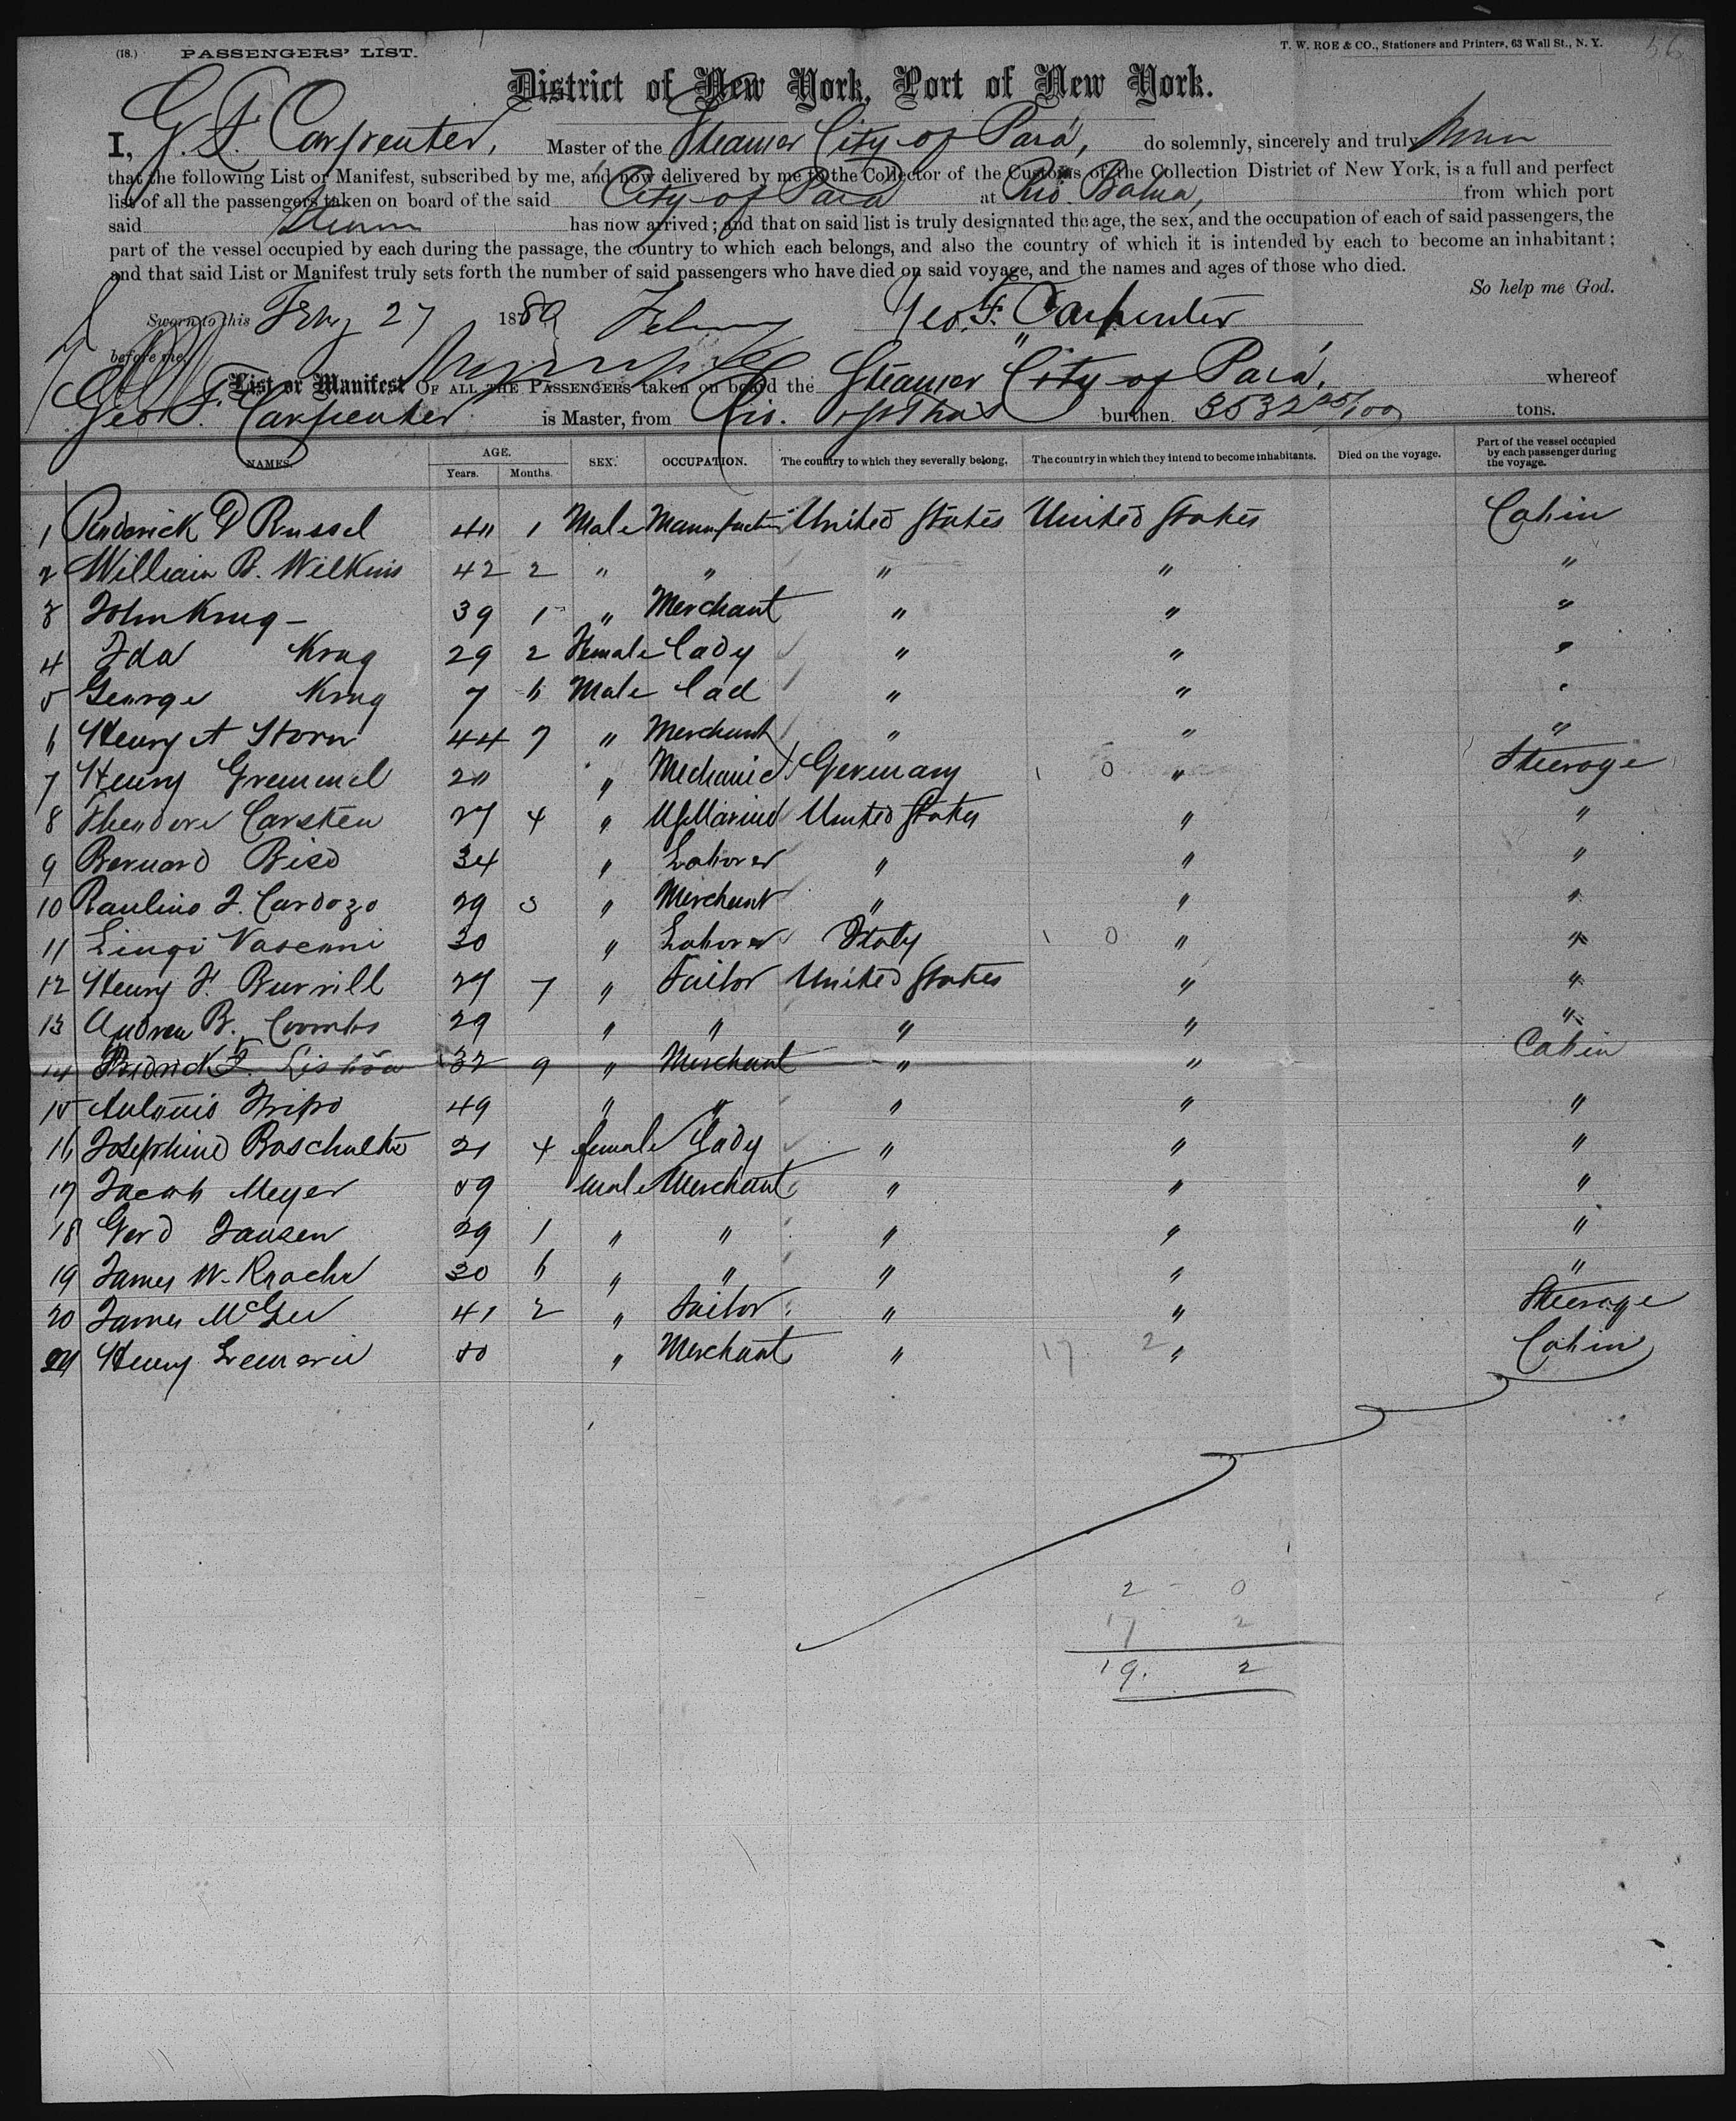 (18.) PASSENGERS' LIST. T. W. ROE & CO., Stationers and Printers, 63 Wall St., N. Y. 56
District of New York, Port of New York.
I, G. F. Carpenter, Master of the Steamer City of Pará, do solemnly, sincerely and truly
that the following List or Manifest, subscribed by me, and now delivered by me to the Collector of the Customs of the Collection District of New York, is a full and perfect
list of all the passengers taken on board of the said City of Pará at Rio. Bahia, from which port
said has now arrived; and that on said list is truly designated the age, the sex, and the occupation of each of said passengers, the
part of the vessel occupied by each during the passage, the country to which each belongs, and also the country of which it is intended by each to become an inhabitant;
and that said List or Manifest truly sets forth the number of said passengers who have died on said voyage, and the names and ages of those who died.
So help me God.
Sworn to this 27 18 Geo. F. Carpenter
before me,
List or Manifest OF ALL THE PASSENGERS taken on board the Steamer City of Pará, whereof
Geo. F. Carpenter is Master, from Rio. burthen 3532 25/100 tons.
NAMES. AGE. SEX. OCCUPATION. The country to which they severally belong, The country in which they intend to become inhabitants. Died on the voyage. Part of the vessel occupied by each passenger during the voyage.
Years. Months.
1 D Russel 1 Male United States United States Cabin
2 William B. Wilkins 42 2 " " " " "
3 John Krug 39 1 " Merchant " " "
4 Ida Krug 29 2 Female Lady " " "
5 George Krug 7 6 Male Lad " " "
6 Henry A Storn 44 7 " Merchant " " "
7 Henry Gremmel " Mechanic Germany 1 0 " Steerage
8 Theodore Carsten 27 4 " United States " "
9 Bernard 34 " Laborer " " "
10 Paulino J. Cardozo 29 3 " Merchant " " "
11 30 " Laborer Italy 1 0 " "
12 Henry F. Burrill 27 7 " Sailor United States " "
13 Andrew B. Coombs 29 " " " " "
14 Lisbôa 32 9 " Merchant " " Cabin
15 Antonio 49 " " " " "
16 Josephine 21 4 female Lady " " "
17 Jacob Meyer 59 male Merchant " " "
18 Gerd Jansen 29 1 " " " " "
19 James W. 30 6 " " " " "
20 James McGee 41 2 " Sailor " " Steerage
21 Henry 50 " Merchant " 17 2 " Cabin
2 - 0
17 2
19. 2